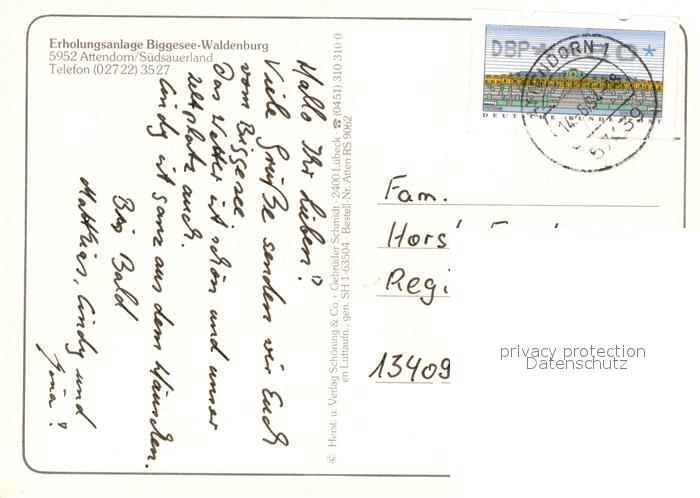 Erholungsanlage Biggesee-Waldenburg
5952 Attendorn/Südsauerland
Telefon (02722) 3527
Hallo Ihr Lieben!
Viele Grüße senden wir Euch
vom Biggesee
Das Wetter ist schön und unser
Zeltplatz auch.
Cindy ist ganz aus dem Häuschen.
Bis Bald
Matthias, Cindy und
© Herst. u. Verlag Schöning & Co + Gebrüder Schmidt · 2400 Lübeck · ☎ (0451) 310 310 0
en Luftaufn., gen. SH 1-63504 · Bestell-Nr. Atten RS 9062
DBP
DEUTSCHE BUNDESPOST
ATTENDORN 1
Fam.
Horst
Regi
13409
privacy protection
Datenschutz